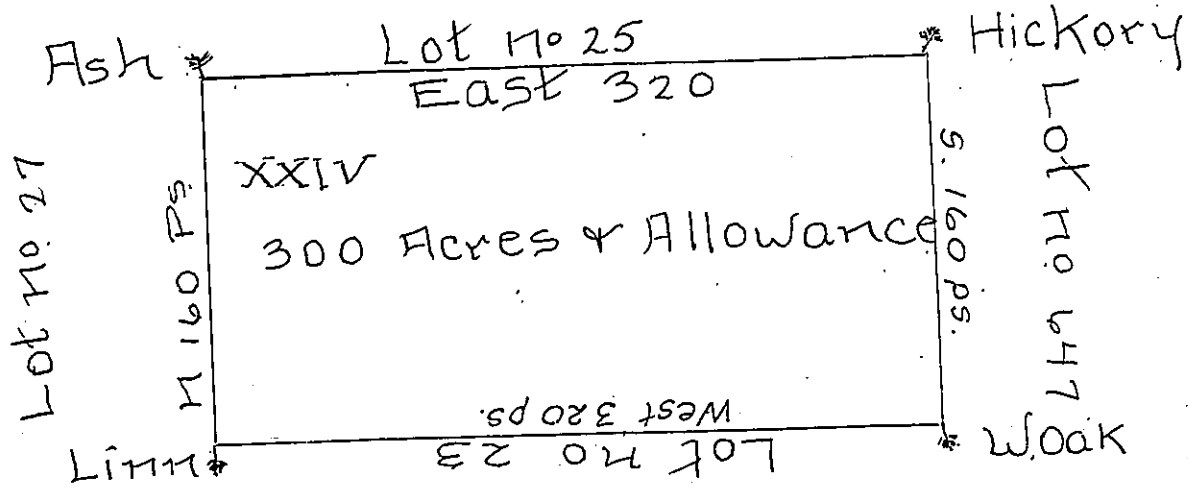 Ash
Lot no 25
Hickory
East 320
Lot no. 27
N 160 Ps.
XXIV
300 Acres & Allowance
S. 160 ps.
Lot no 647
West 320 ps.
Lot no 23
Linn
W.oak